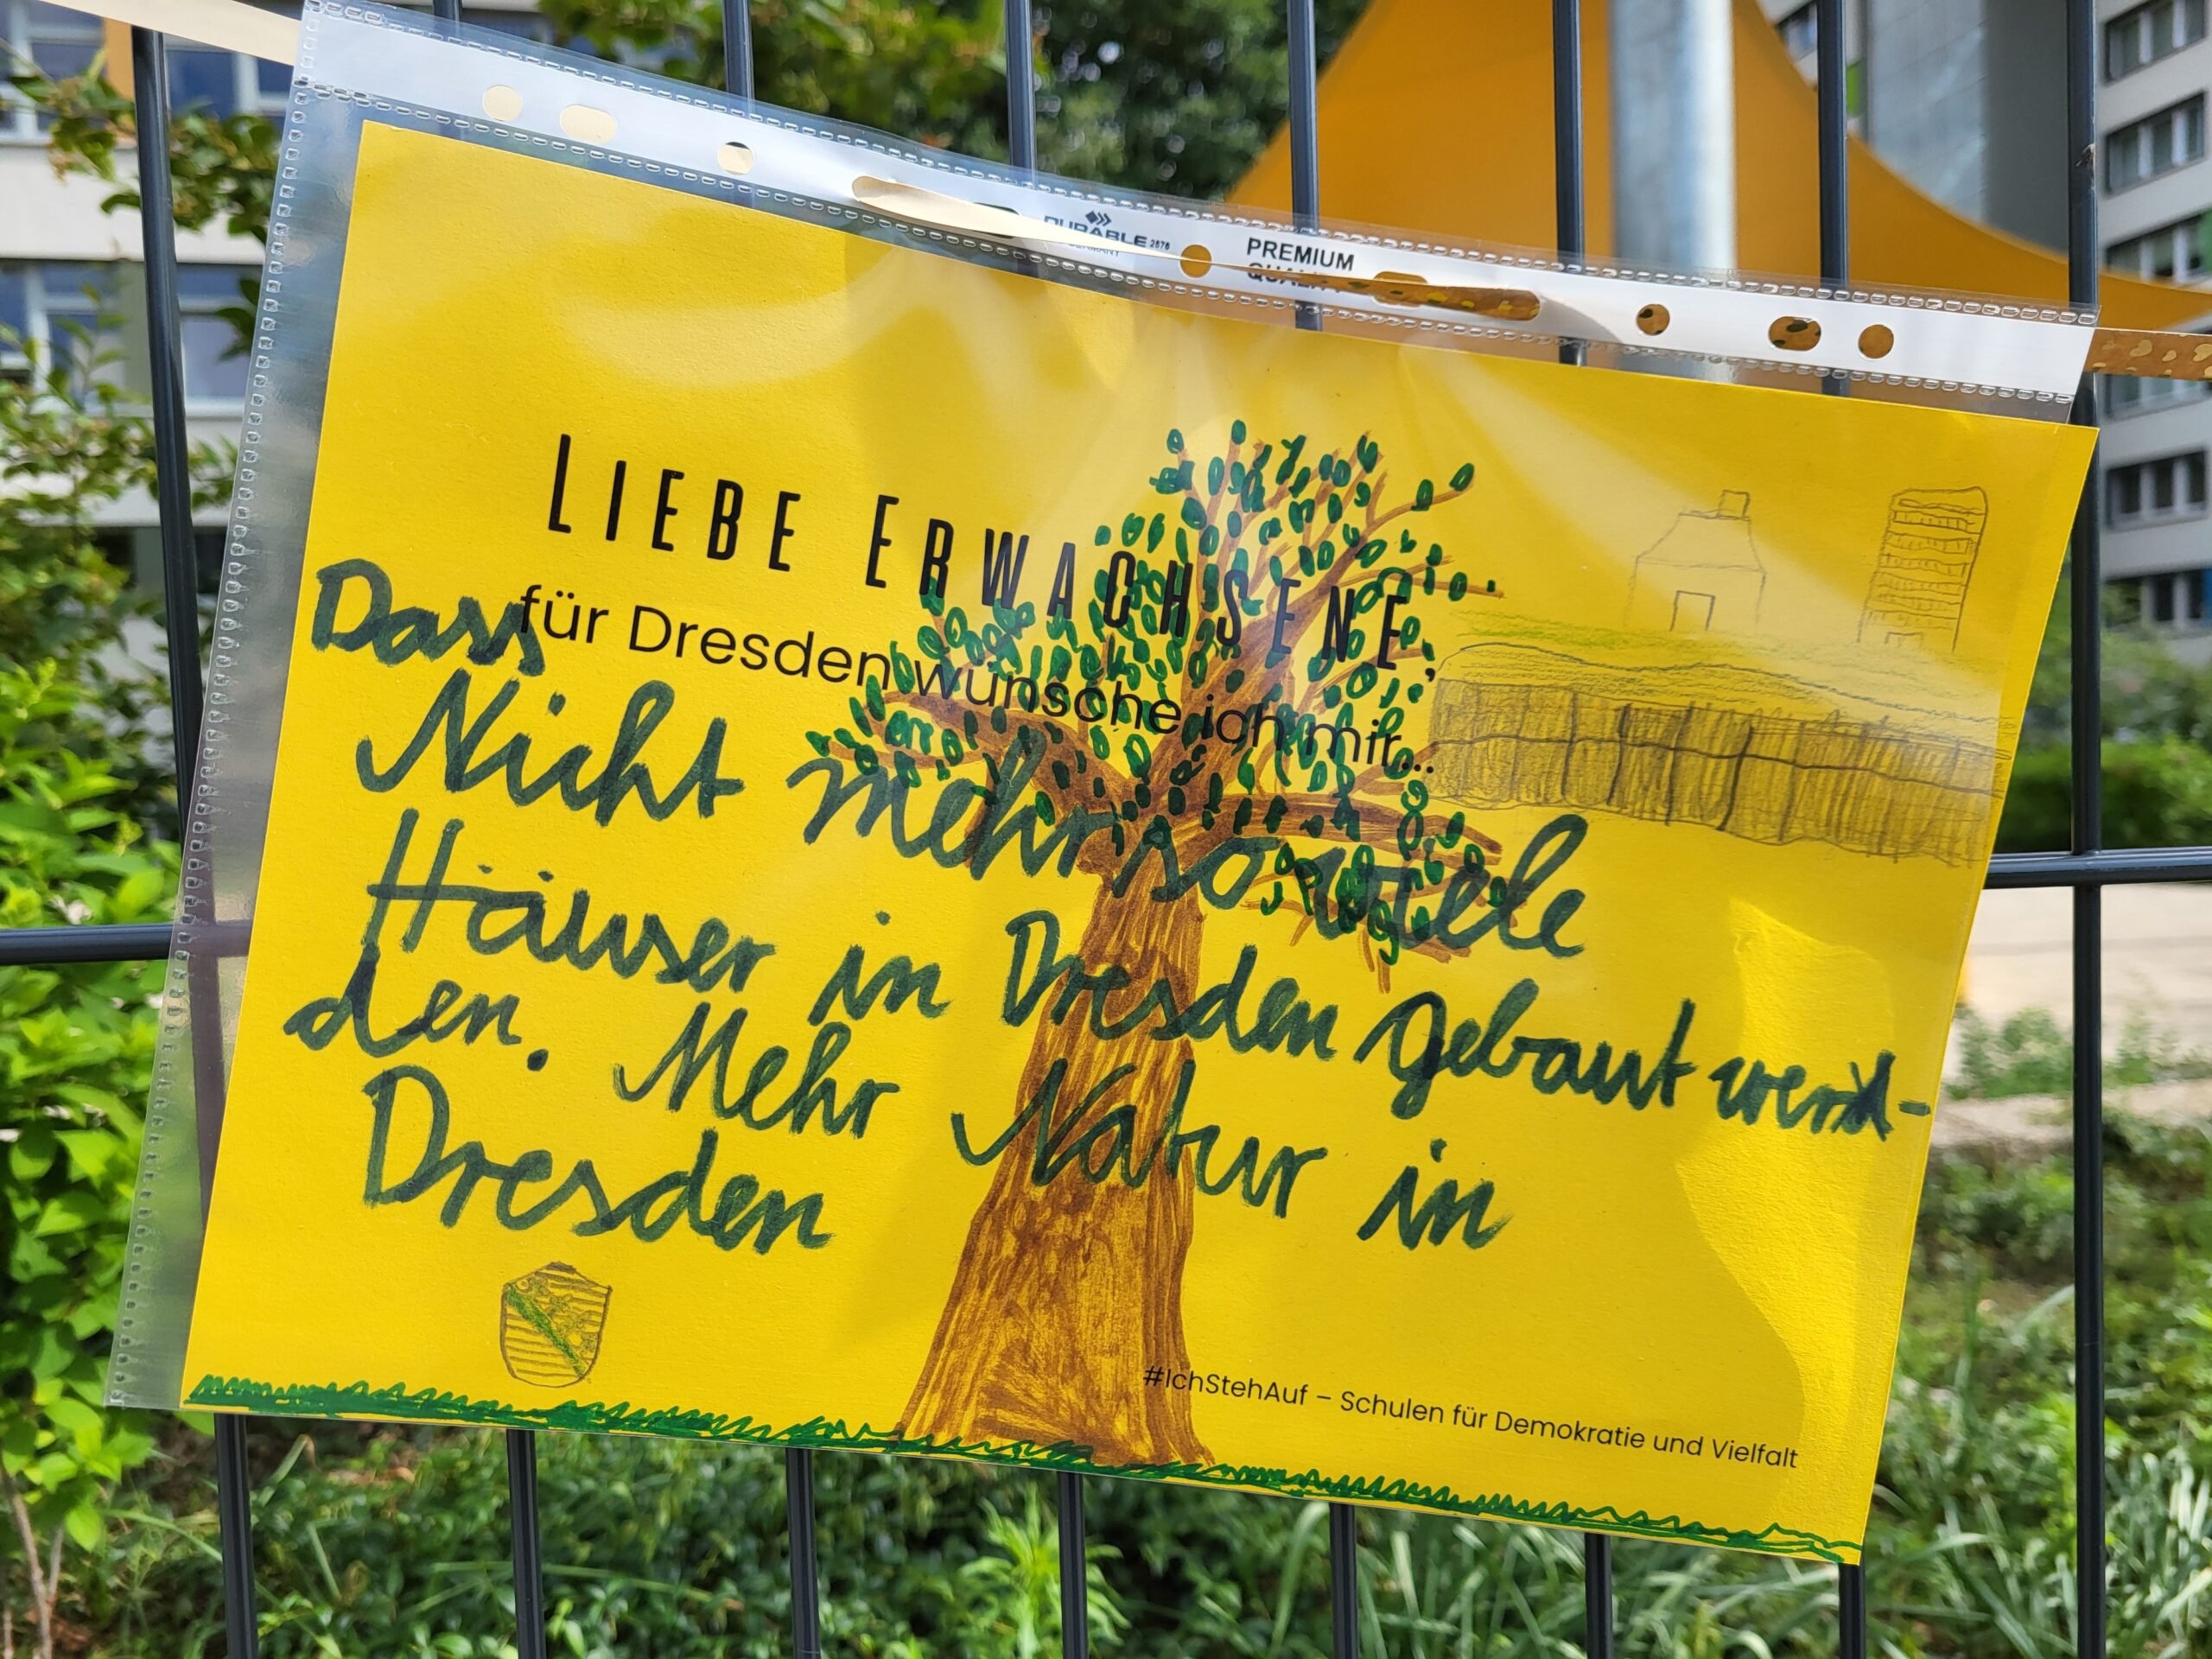 DURABLE 2676
GERMANY
PREMIUM
QUALITY
LIEBE ERWACHSENE,
für Dresden wünsche ich mir...
Dass
Nicht mehr so viele
Häuser in Dresden gebaut werd-
den. Mehr Natur in
Dresden
#IchStehAuf – Schulen für Demokratie und Vielfalt